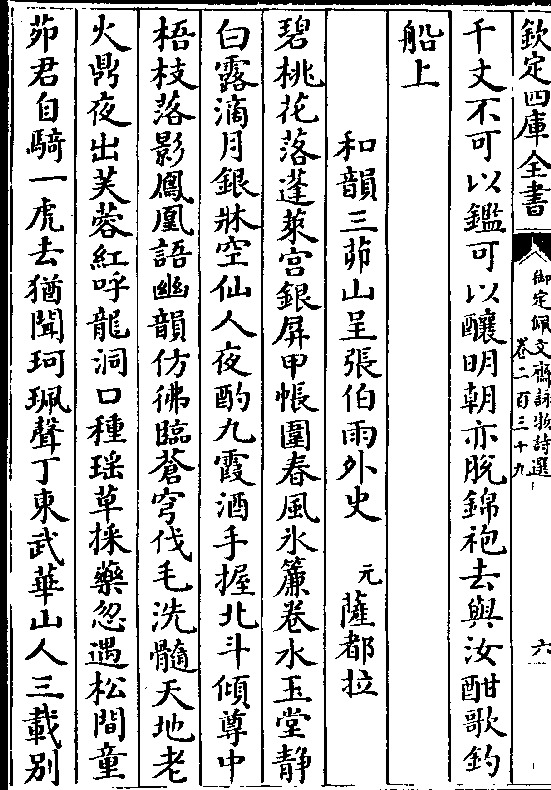 欽定四庫全書
御定佩文齋詠物詩選
卷二百三十九
六
千丈不可以鑑可以釀明朝亦脫錦袍去與汝酣歌釣
船上
和韻三茆山呈張伯雨外史 元 薩都拉
碧桃花落蓬萊宫銀屏甲帳圍春風氷簾卷水玉堂靜
白露滴月銀牀空仙人夜酌九霞酒手握北斗傾尊中
梧枝落影鳳凰語幽韻仿彿臨蒼穹伐毛洗髓天地老
火鼎夜出芙蓉紅呼龍洞口種瑶草採藥忽遇松間童
茆君自騎一虎去猶聞珂珮聲丁東武華山人三載别